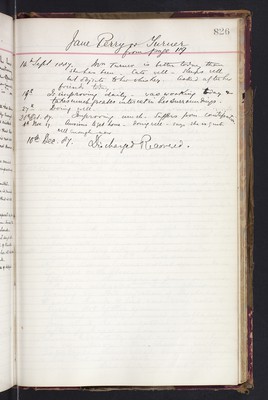 826
Jane Perry or Turner
from page 19
16th Sept 1887. Mrs Turner is better today than
she has been. Eats well - sleeps well
tho'
19th Is improving daily - was working today &
takes much greater interest in her surroundings.
27th Doing well.
Oct. 87. Improving much - suffers from constipation
Nov. 87 Anxious to get home - doing well - says she is quite
well enough now
10th Dec. 87. Discharged Recovered.